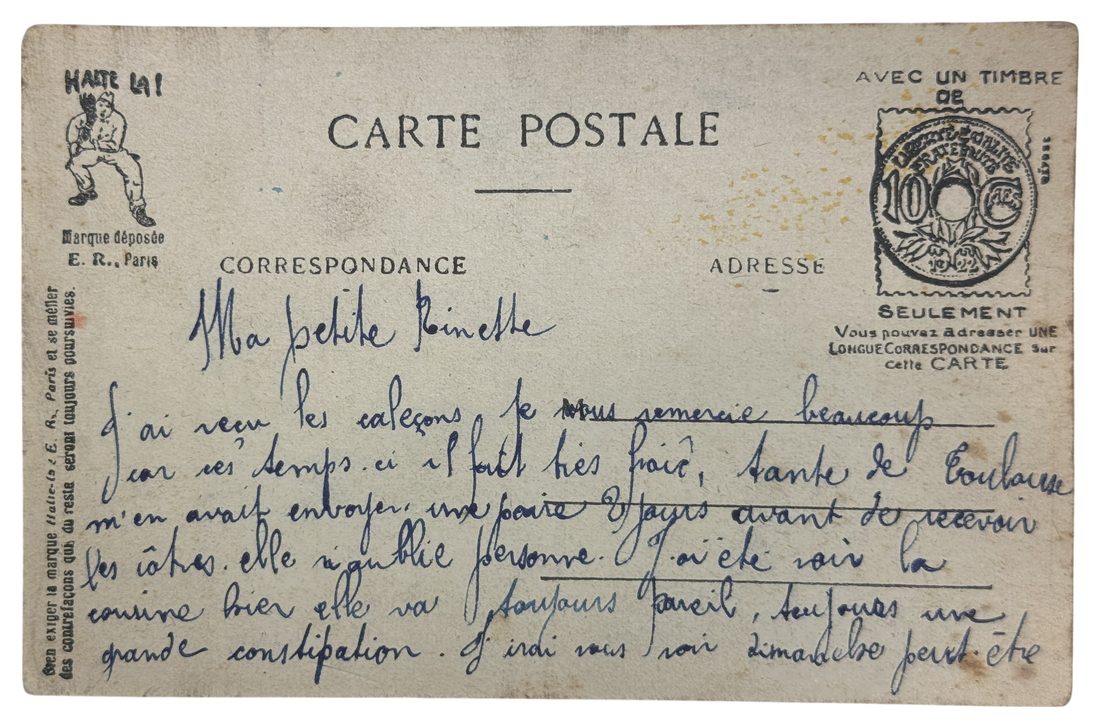 HALTE LA!
Marque déposée
E. R., Paris
Bien exiger la marque Halte-là E. R. Paris et se méfier
des contrefaçons qui, du reste seront toujours poursuivies.
CARTE POSTALE
CORRESPONDANCE
ADRESSE
AVEC UN TIMBRE
DE
LIBERTÉ ÉGALITÉ
FRATERNITÉ
10 CMES
1922
SEULEMENT
Vous pouvez adresser UNE
LONGUE CORRESPONDANCE sur
cette CARTE
Ma petite Rinette
J'ai reçu les caleçons je vous remercie beaucoup
car ces temps-ci il fait très froid, tante de Toulouse
m'en avait envoyer une paire 8 jours avant de recevoir
les vôtres. elle n'oublie personne. J'ai été voir la
cousine hier elle va toujours pareil, toujours une
grande constipation. J'irai vous voir dimanche peut-être